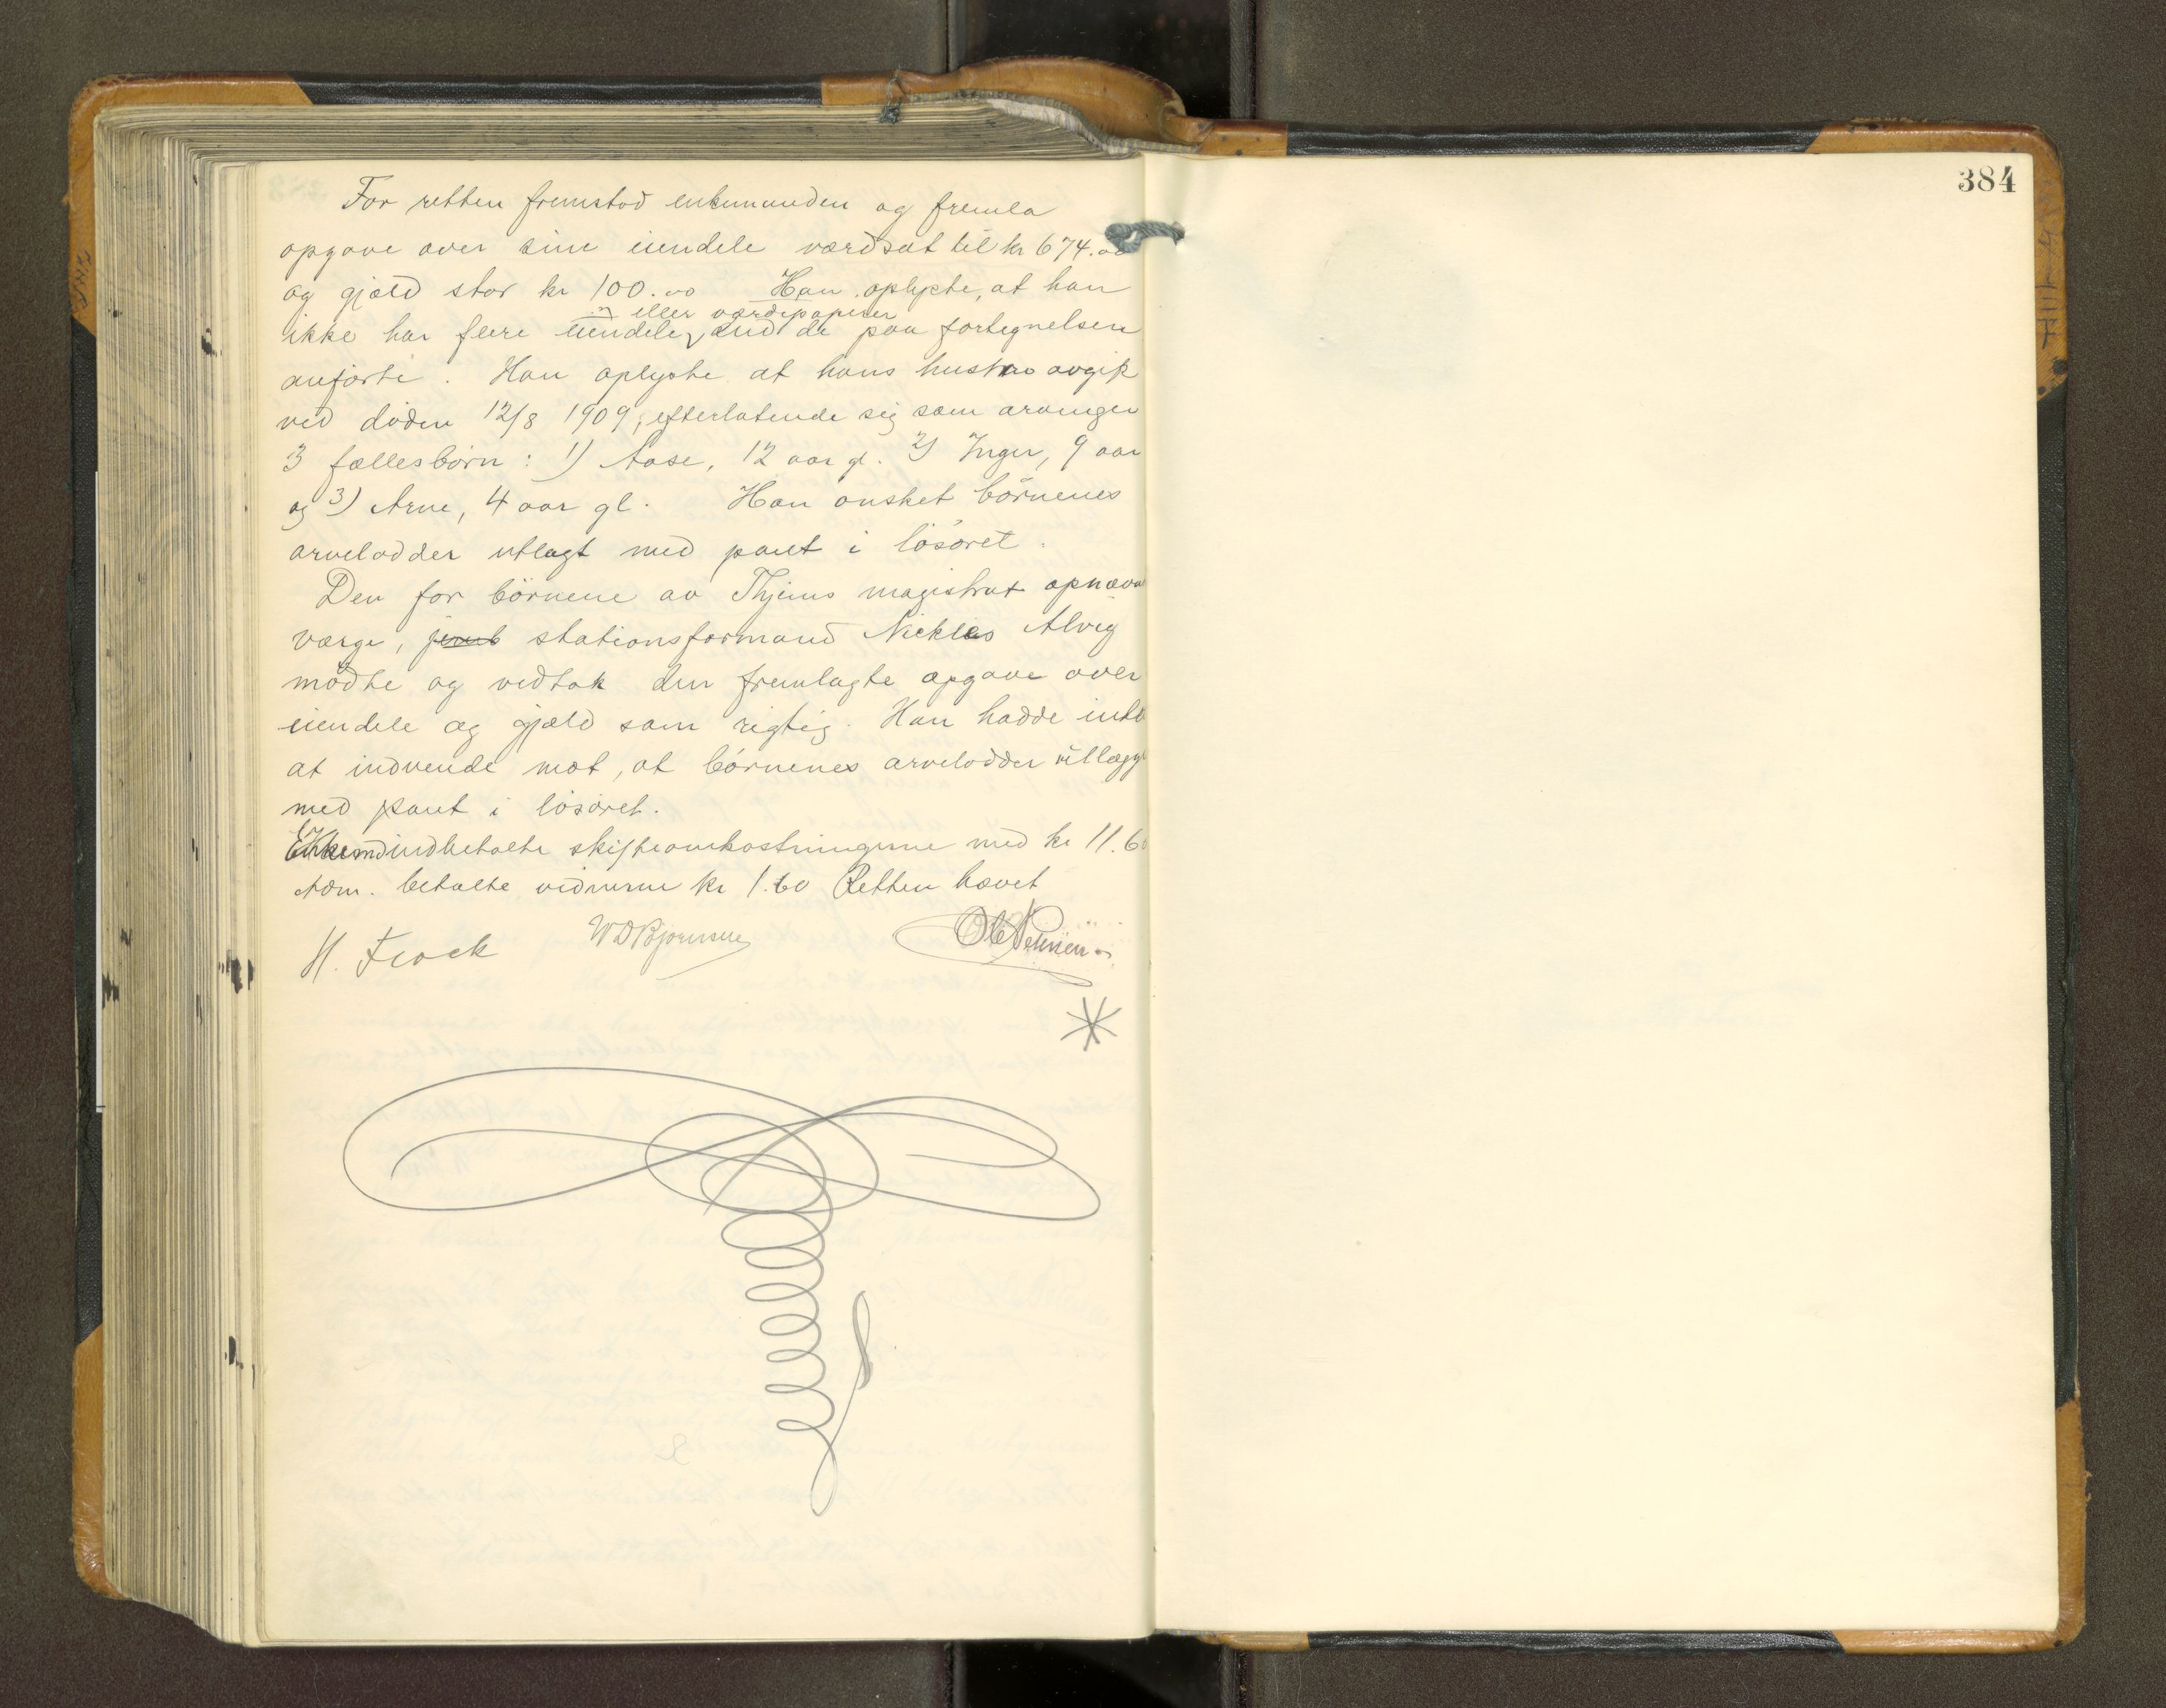 384
For retten fremstod enkemanden og fremla
opgave over sine eiendele værdsat til kr 674.00
og gjæld stor kr 100.00 Han oplyste, at han
eller værdipapirer
ikke har flere eiendele end de paa fortegnelsen
anførte. Han oplyste at hans hustru avgik
ved døden 12/8 1909, efterlatende sig som arvinger
3 fællesbørn: 1) Aase, 12 aar gl. 2) Inger, 9 aar
og 3) Arne, 4 aar gl. Han ønsket børnenes
arvelodder utlagt med pant i løsøret.
Den for børnene av Thjems magistrat opnævn
værge, stationsformand Nicklas Alvig
mødte og vedtok den fremlagte opgave over
eiendele og gjæld som rigtig. Han hadde intet
at indvende mot, at børnenes arvelodder utlægg
med pant i løsøret.
Enkem indbetalte skifteomkostningerne med kr 11.60
Adm. betalte vidnerne kr 1.60 Retten hævet
H. Frock W D Bjørnson